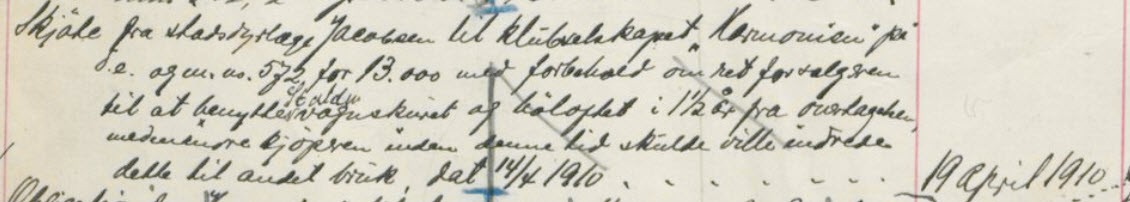 Skjøte fra stadsdyrlæge Jacobsen til klubselskapet "Harmonien" på
d.e. og m. no. 572, for 13.000 med forbehold om ret for sælgeren
til at benytte stalden, vognskuret og høloftet i 1 1/2 år fra overtagelsen,
medmindre kjøperen inden denne tid skulde ville indrede
dette til andet bruk, dat 14/4 1910 . . . . . . . 19 April 1910